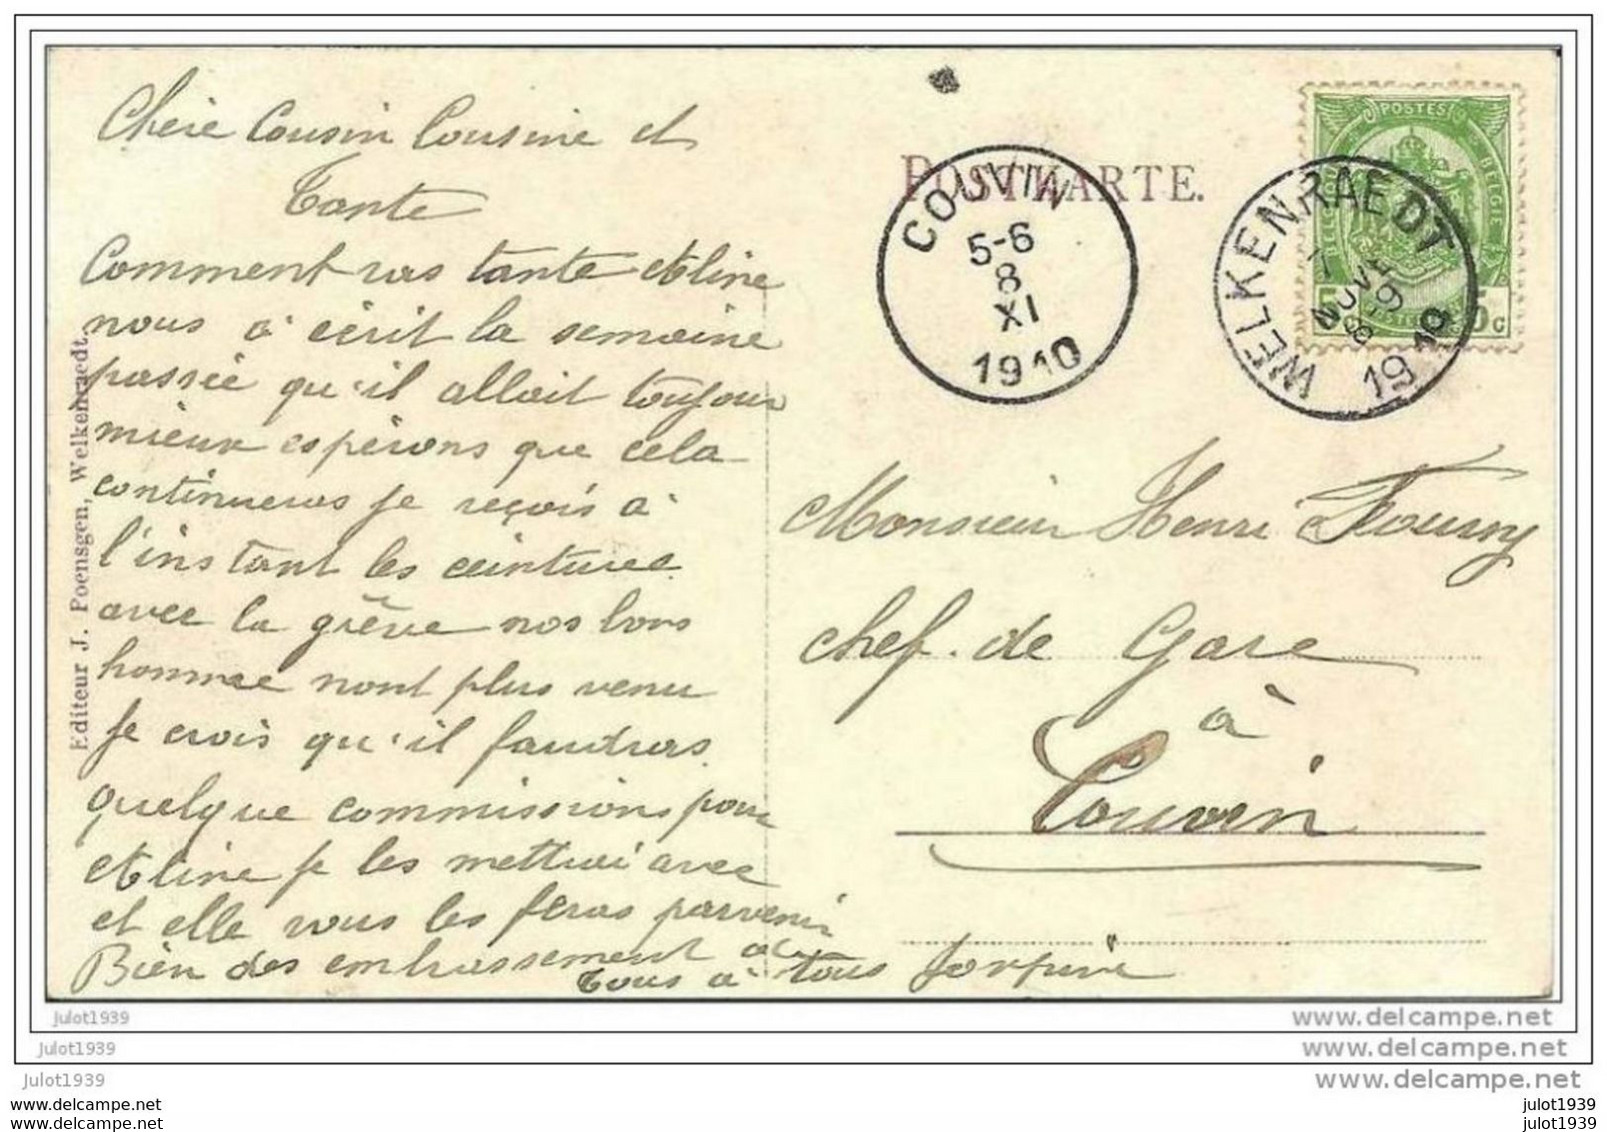 Chère Cousin Cousine et
Tante
Comment vas tante Céline
nous a écrit la semaine
passée qu'il allait toujours
mieux espérons que cela
continueras je reçois à
l'instant les ceintures
avec la grève nos bons
homme nont plus venu
Je crois qu'il faudras
quelque commissions pour
Céline je les mettrai avec
et elle vous les feras parvenir
Bien des embrassement de
tous à tous
Editeur J. Poensgen, Welkenraedt.
POSTKARTE.
COUVIN
5-6
8
XI
1910
WELKENRAEDT
7
NOV
8-9
1910
POSTES
BELGIE
5c
Monsieur Henri Fourny
Chef. de Gare
à
Couvin
julot1939
julot1939
julot1939
julot1939
julot1939
www.delcampe.net
www.delcampe.net
www.delcampe.net
www.delcampe.net
www.delcampe.net
julot1939
julot1939